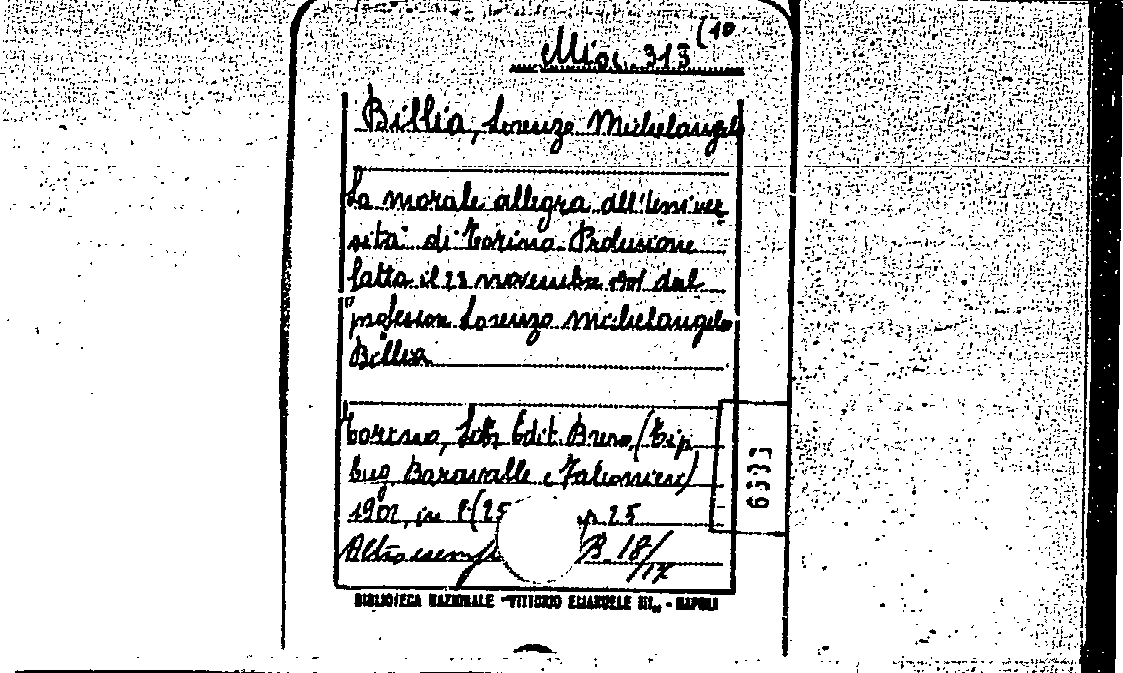 Misc. 313 (10
Billia, Lorenzo Michelangelo
La morale allegra all'Univer
sità di Torino. Prolusione
fatta il 22 novembre 1901 dal
professore Lorenzo Michelangelo
Billia
Torino, Lib. Edit. Brero, (Tip
Eug. Baravalle e Falconieri)
1902, in 8 (25 p. 25
Altro esemp B. 18/17
6333
BIBLIOTECA NAZIONALE "VITTORIO EMANUELE III" - NAPOLI